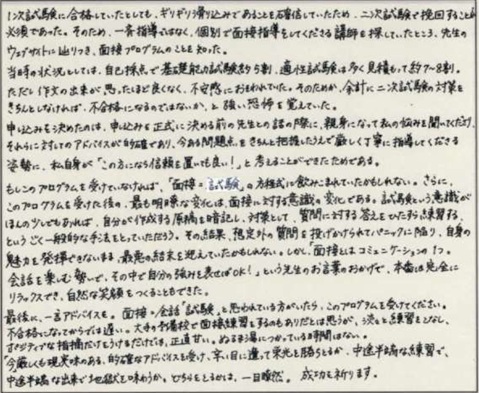 1次試験に合格していたとしても、ギリギリ滑り込みであることを確信していたため、二次試験で挽回することが
必須であった。そのため、一斉指導ではなく、個別で面接指導をしてくださる講師を探していたところ、先生の
ウェブサイトに辿りつき、面接プログラムのことを知った。
当時の状況としては、自己採点で基礎能力試験を約5割、適性試験は多く見積もって約7〜8割。
ただし作文の出来が思ったほど良くなく、不安感におそわれていた。そのためか、余計に二次試験の対策を
きちんとしなければ、不合格になるのではないか、と強い恐怖を覚えていた。
申し込みを決めたのは、申し込みを正式に決める前の先生との話の際に、親身になって私の悩みを聞いてくださり、
それらに対してのアドバイスが的確であり、今ある問題点をきちんと把握したうえで厳しく丁寧に指導してくださる
姿勢に、私自身が「この方になら信頼を置いても良い!」と考えることができたためである。
もしこのプログラムを受けていなければ、「面接=試験」の方程式に飲みこまれていたかもしれない。さらに、
このプログラムを受けた後の、最も明確な変化は、面接に対する意識の変化である。試験という意識が
ほんの少しでもあれば、自分が作成する原稿を暗記し、対策として、質問に対する答えをひたすら練習する、
というごく一般的な手法をとっていただろう。その結果、想定外の質問を投げかけられてパニックに陥り、自身の
魅力を発揮できないまま、最悪の結果を迎えていたかもしれない。しかし、「面接とはコミュニケーションの1つ。
会話を楽しむ勢いで、その中で自分の強みを表せばOK!」という先生のお言葉のおかげで、本番は完全に
リラックスでき、自然な笑顔をつくることもできた。
最後に、一言アドバイスを。面接・会話「試験」と思われている方がいたら、このプログラムを受けてください。
不合格になってからでは遅い。大手の予備校で面接練習をするのもありだとは思うが、淡々と練習をこなし、
ポジティブな指摘だけをうけるだけでは、正直甘い。ぬるま湯につかっている時間はない。
今厳しくも現実味のある、的確なアドバイスを受け、辛い目に遭って栄光を勝ちとるか、中途半端な練習で、
中途半端な出来で地獄を味わうか。どちらをとるかは、一目瞭然。成功を祈ります。